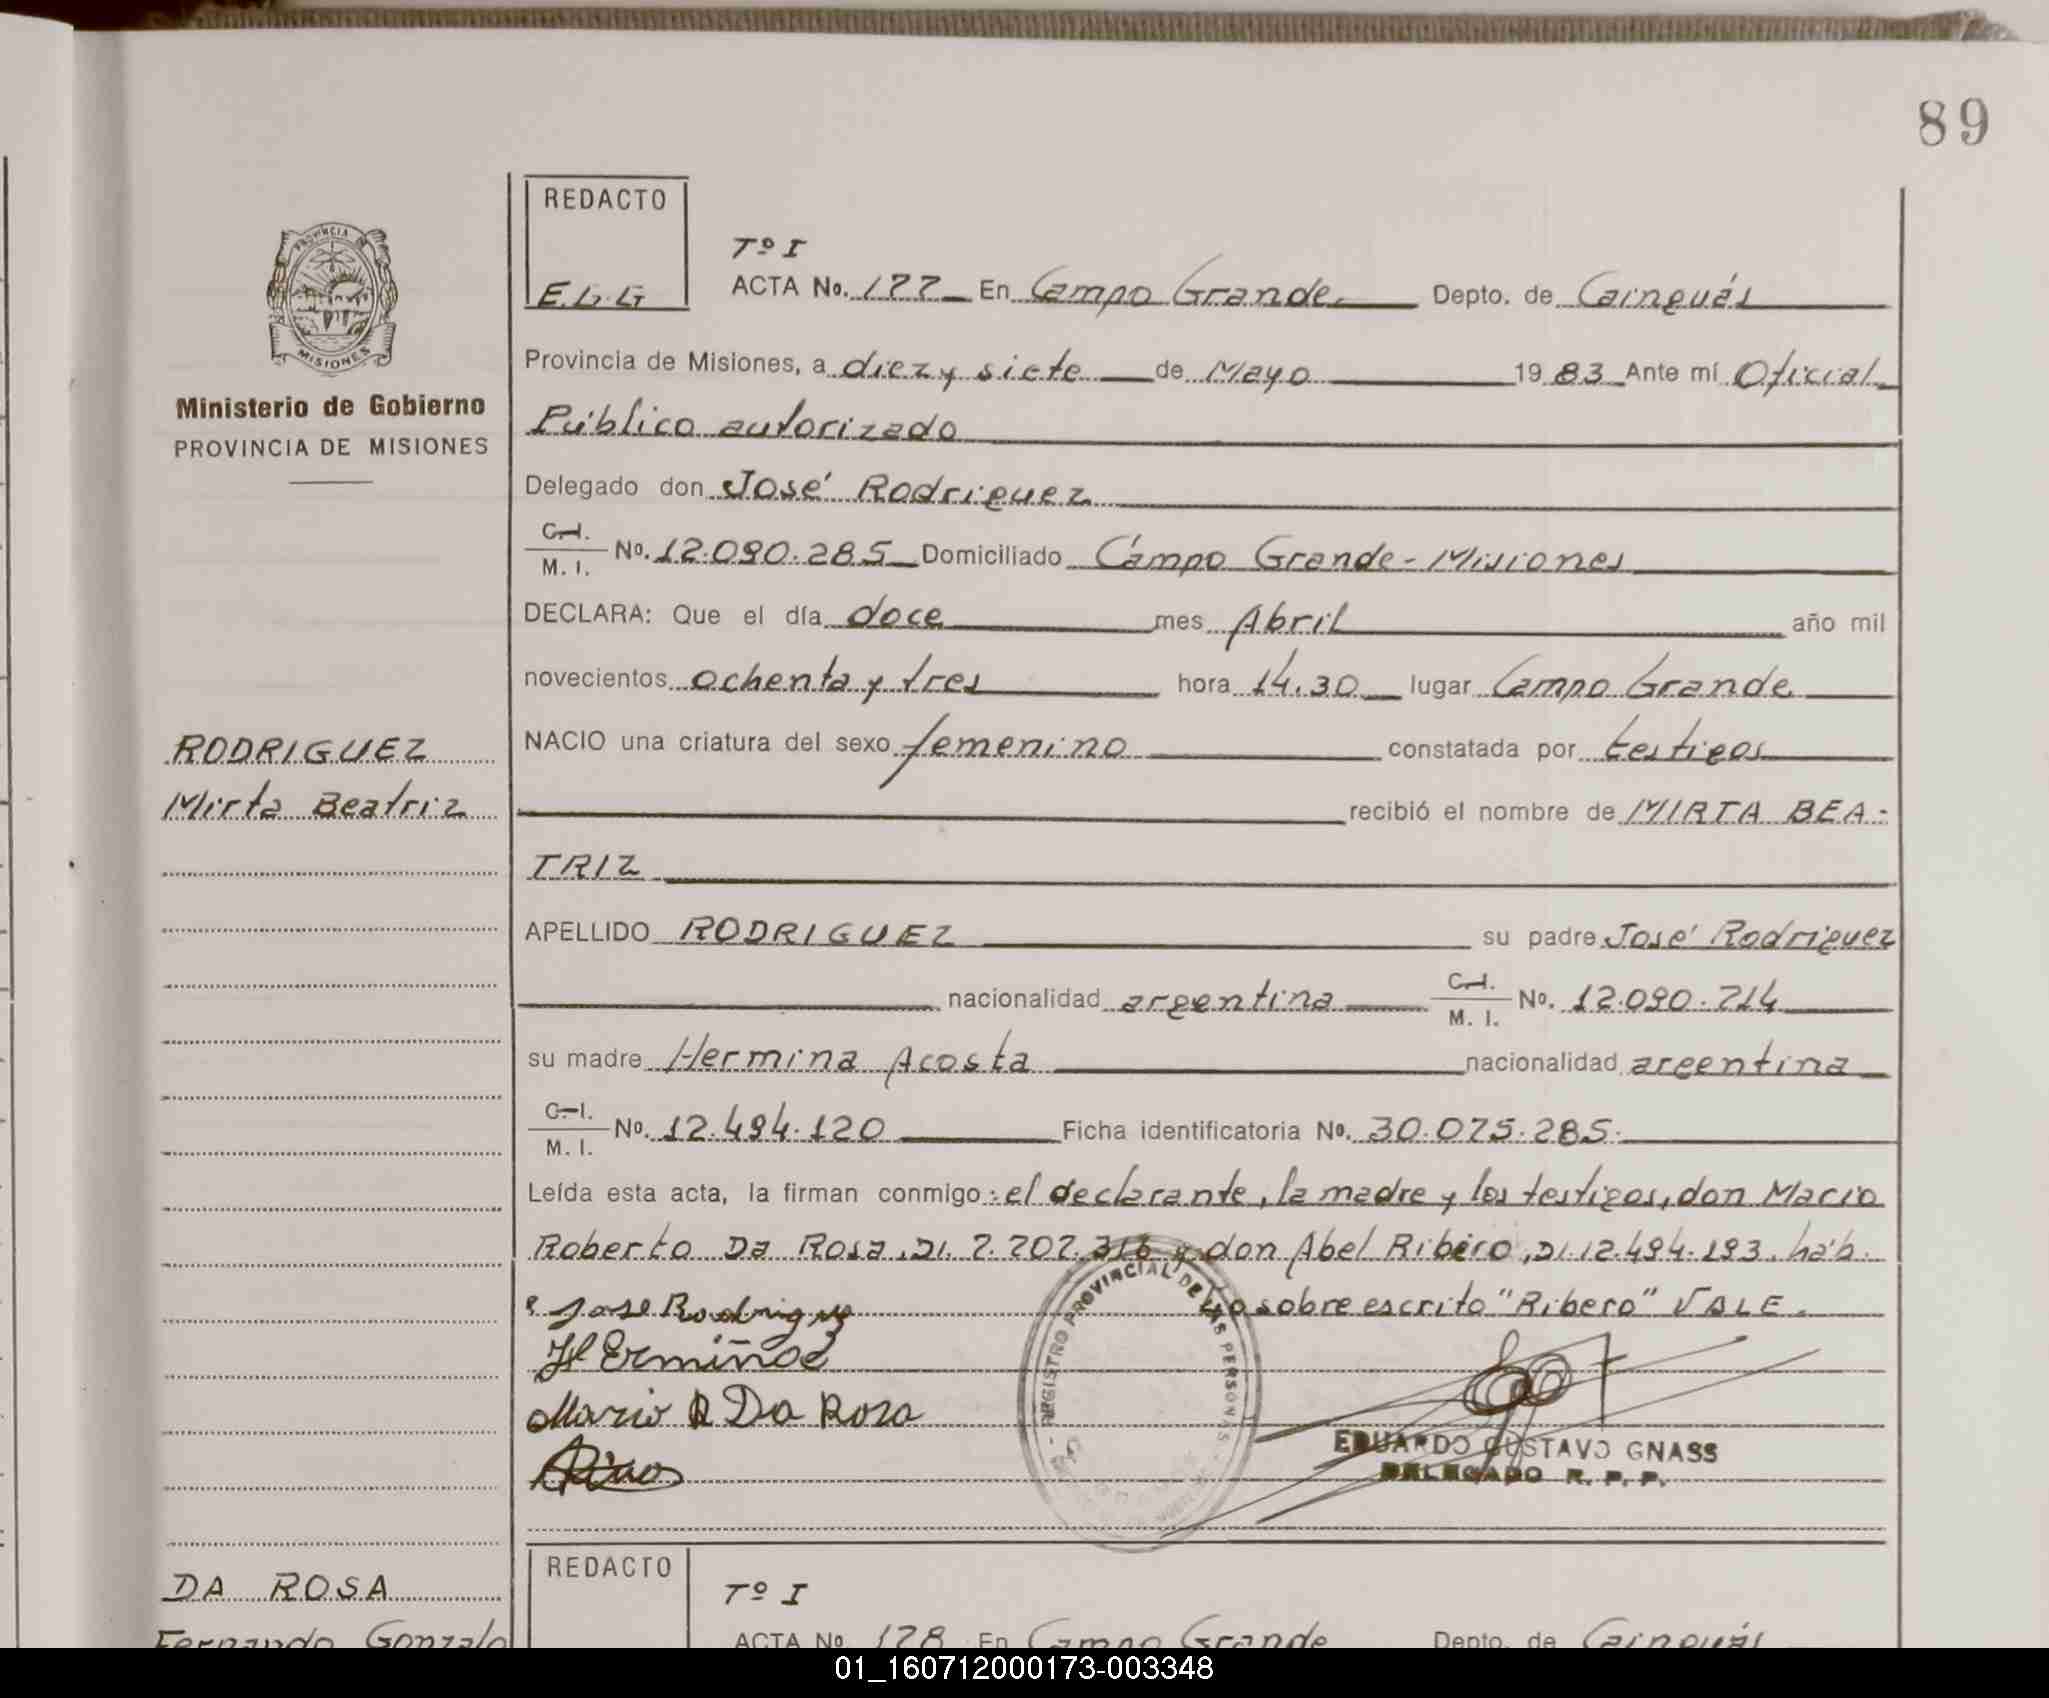 89
REDACTO
E.G.G
Tº I
ACTA No. 177 En Campo Grande. Depto. de Cainguás
PROVINCIA DE
MISIONES
Provincia de Misiones, a diez y siete de Mayo 1983 Ante mí Oficial
Ministerio de Gobierno
PROVINCIA DE MISIONES
Público autorizado
Delegado don José Rodriguez
C.I.
M. I. No. 12.090.285 Domiciliado Campo Grande - Misiones
DECLARA: Que el día doce mes Abril año mil
novecientos ochenta y tres hora 14.30 lugar Campo Grande
RODRIGUEZ
Mirta Beatriz
NACIO una criatura del sexo femenino constatada por testigos
recibió el nombre de MIRTA BEA-
TRIZ
APELLIDO RODRIGUEZ su padre José Rodriguez
nacionalidad argentina C.I.
M. I. No. 12.090.714
su madre Hermina Acosta nacionalidad argentina
C.I.
M. I. No. 12.494.120 Ficha identificatoria No. 30.075.285.
Leída esta acta, la firman conmigo: el declarante, la madre y los testigos, don Mario
Roberto Da Rosa, DI. 7.707.316 y don Abel Ribero, DI. 12.494.193. háb.
sobre escrito "Ribero" VALE.
Jose Rodriguez
Mario R Da Rosa
REGISTRO PROVINCIAL DE LAS PERSONAS
EDUARDO GUSTAVO GNASS
DELEGADO R. P. P.
REDACTO
Tº I
DA ROSA
Fernando Gonzalo
ACTA No. 178 En Campo Grande Depto. de Cainguás
01_160712000173-003348